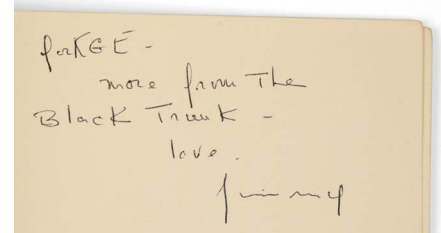 for KGE -
more from The
Black Trunk -
love.
Jimmy